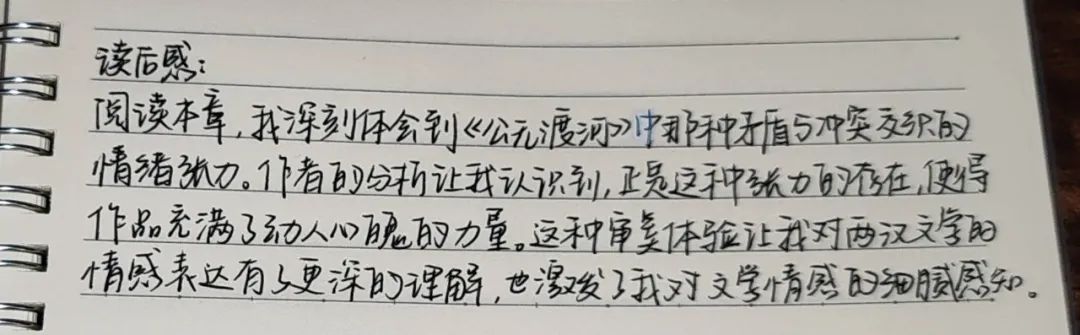 读后感:
阅读本章,我深刻体会到《公无渡河》中那种矛盾与冲突交织的
情绪张力。作者的分析让我认识到,正是这种张力的存在,使得
作品充满了动人心魄的力量。这种审美体验让我对两汉文学的
情感表达有了更深的理解,也激发了我对文学情感的细腻感知。